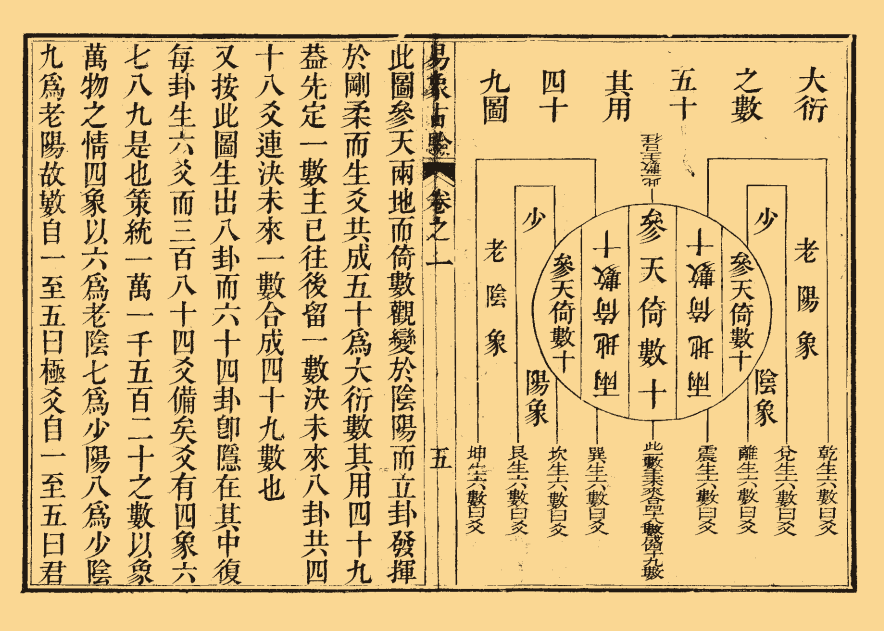 大衍
之數
五十
其用
四十
九圖
老陽象
少
陰象
少
陽象
老陰象
參天倚數十
兩地倚數十
參天倚數十
兩地倚數十
參天倚數十
乾生六數曰爻
兌生六數曰爻
離生六數曰爻
震生六數曰爻
巽生六數曰爻
坎生六數曰爻
艮生六數曰爻
坤生六數曰爻
易象
卷之一
五
此圖參天兩地而倚數觀變於陰陽而立卦發揮
於剛柔而生爻共成五十爲大衍數其用四十九
葢先定一數主已往後留一數決未來八卦共四
十八爻連決未來一數合成四十九數也
又按此圖生出八卦而六十四卦卽隱在其中復
每卦生六爻而三百八十四爻備矣爻有四象六
七八九是也策統一萬一千五百二十之數以象
萬物之情四象以六爲老陰七爲少陽八爲少陰
九爲老陽故數自一至五曰極爻自一至五曰君